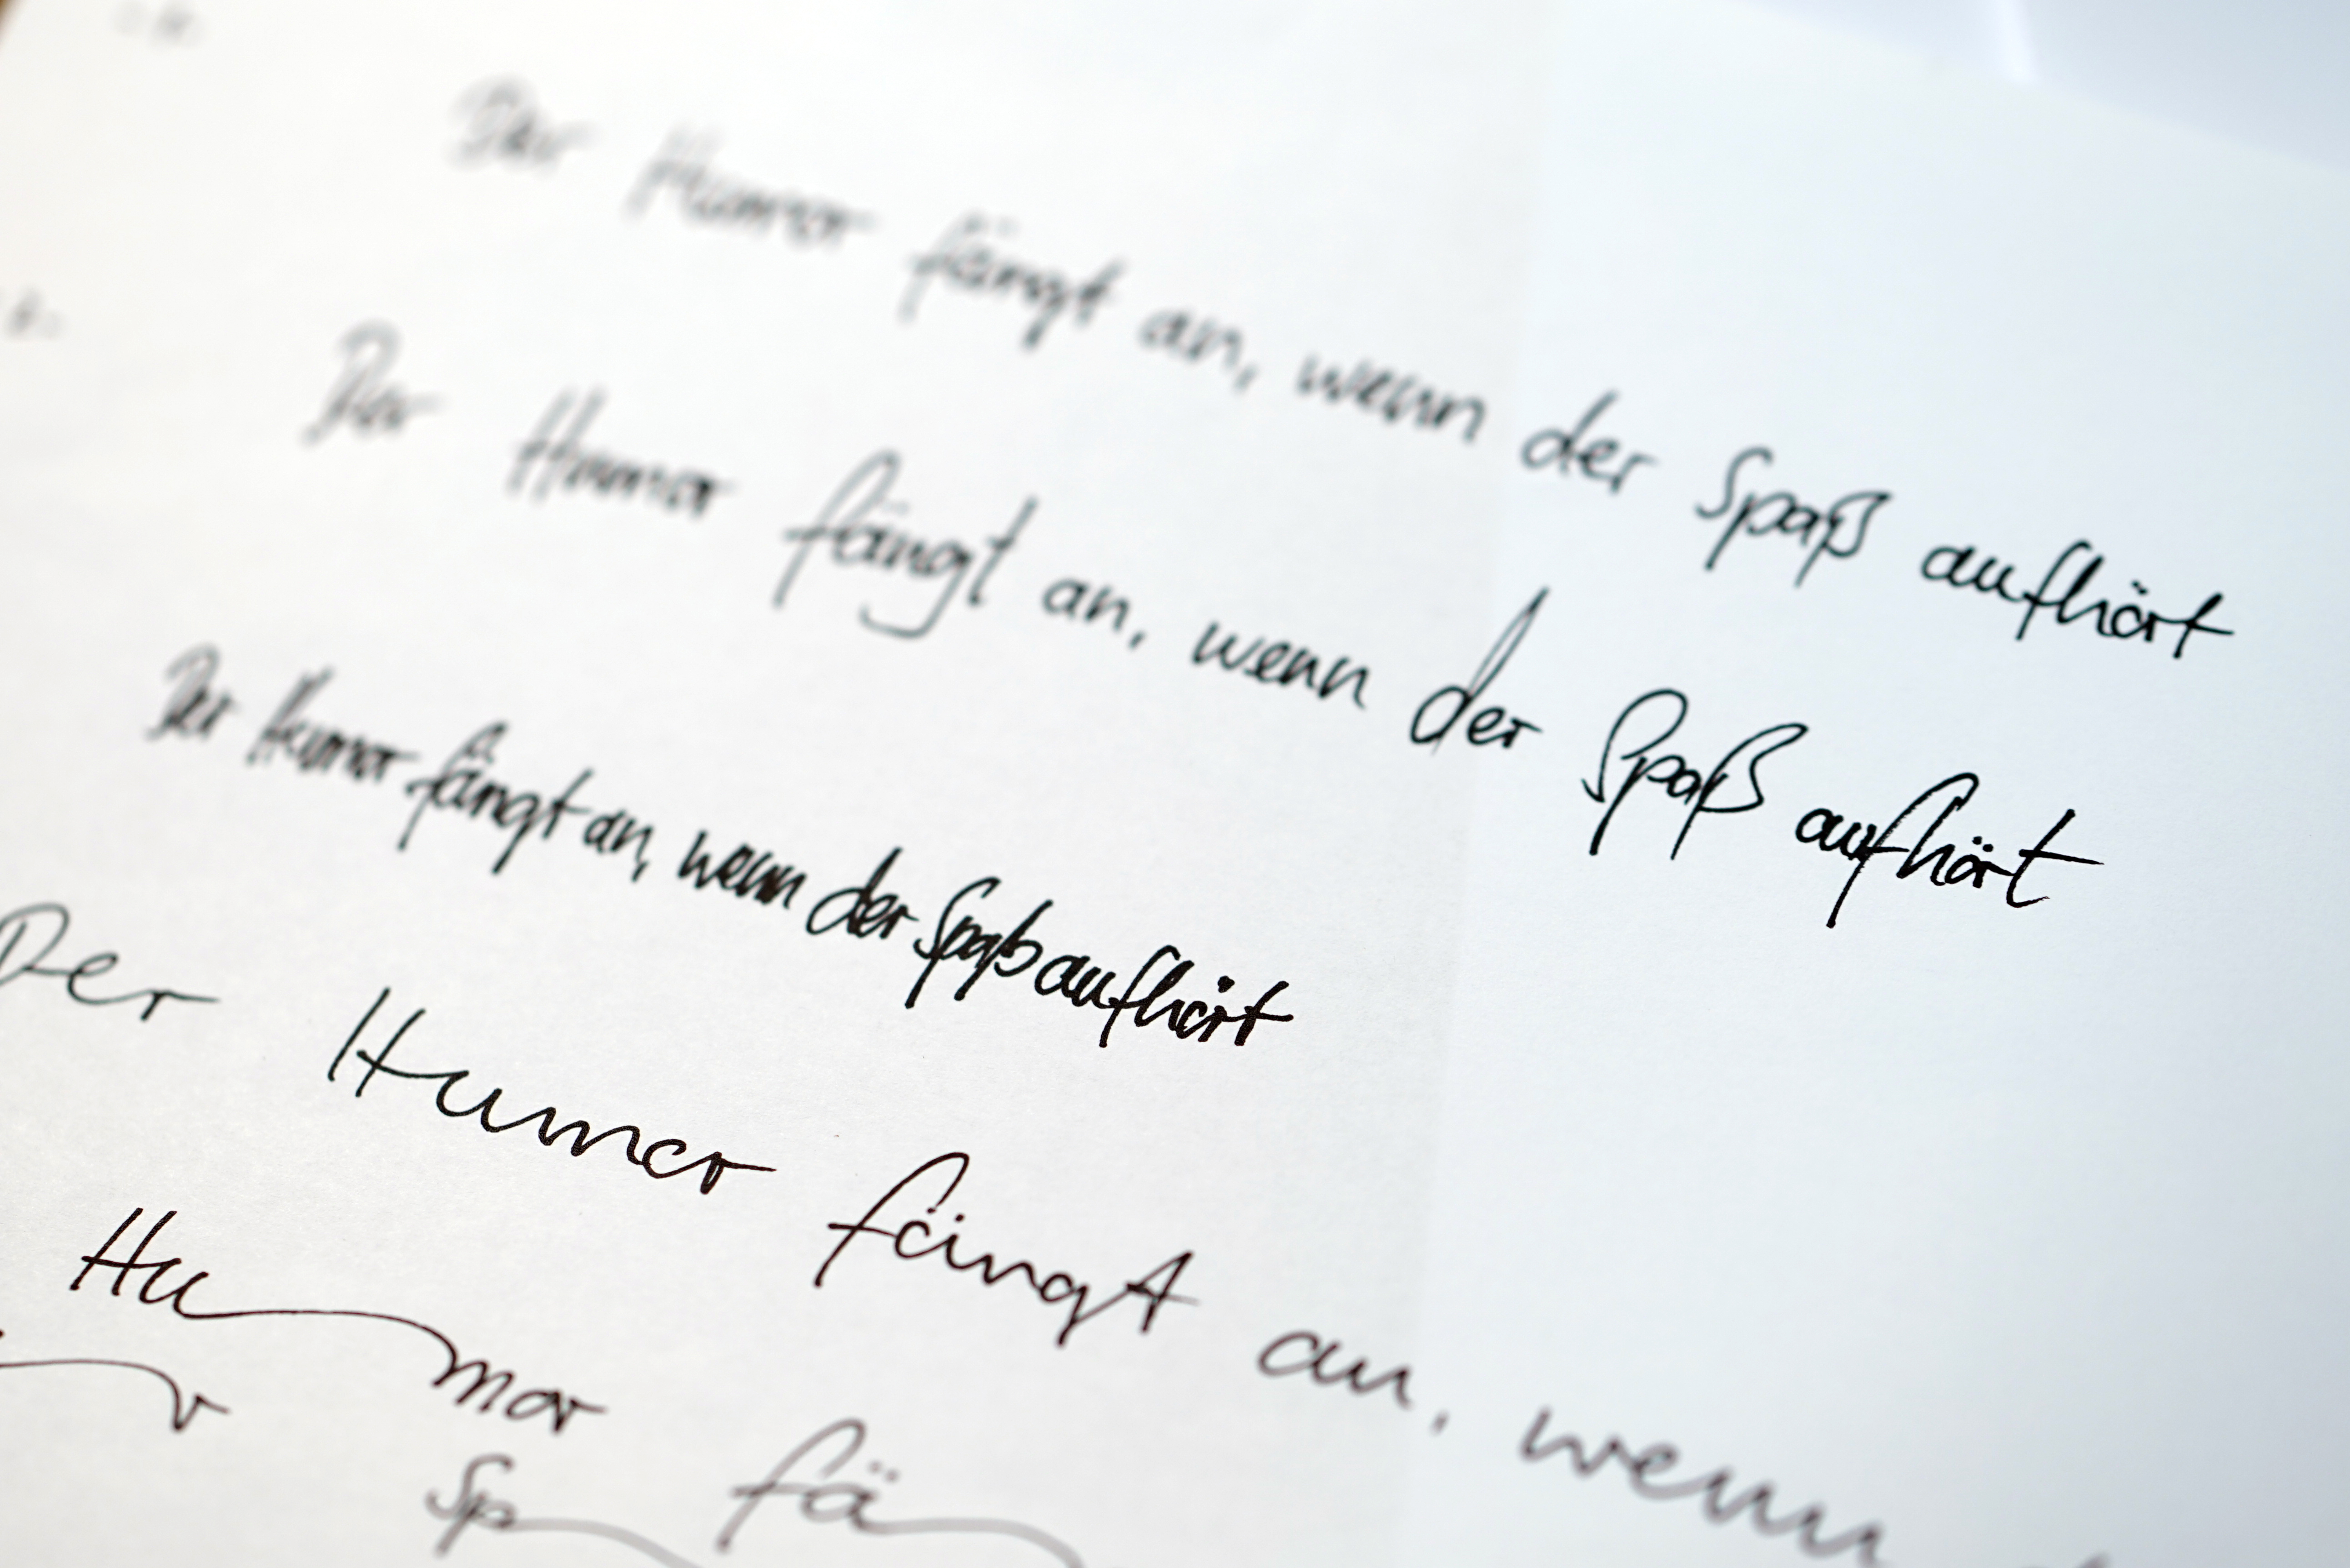 Der Humor fängt an, wenn der Spaß aufhört
Der Humor fängt an, wenn der Spaß aufhört
Der Humor fängt an, wenn der Spaß aufhört
Der Humor fängt an, wenn
Hu mor fä
r Sp